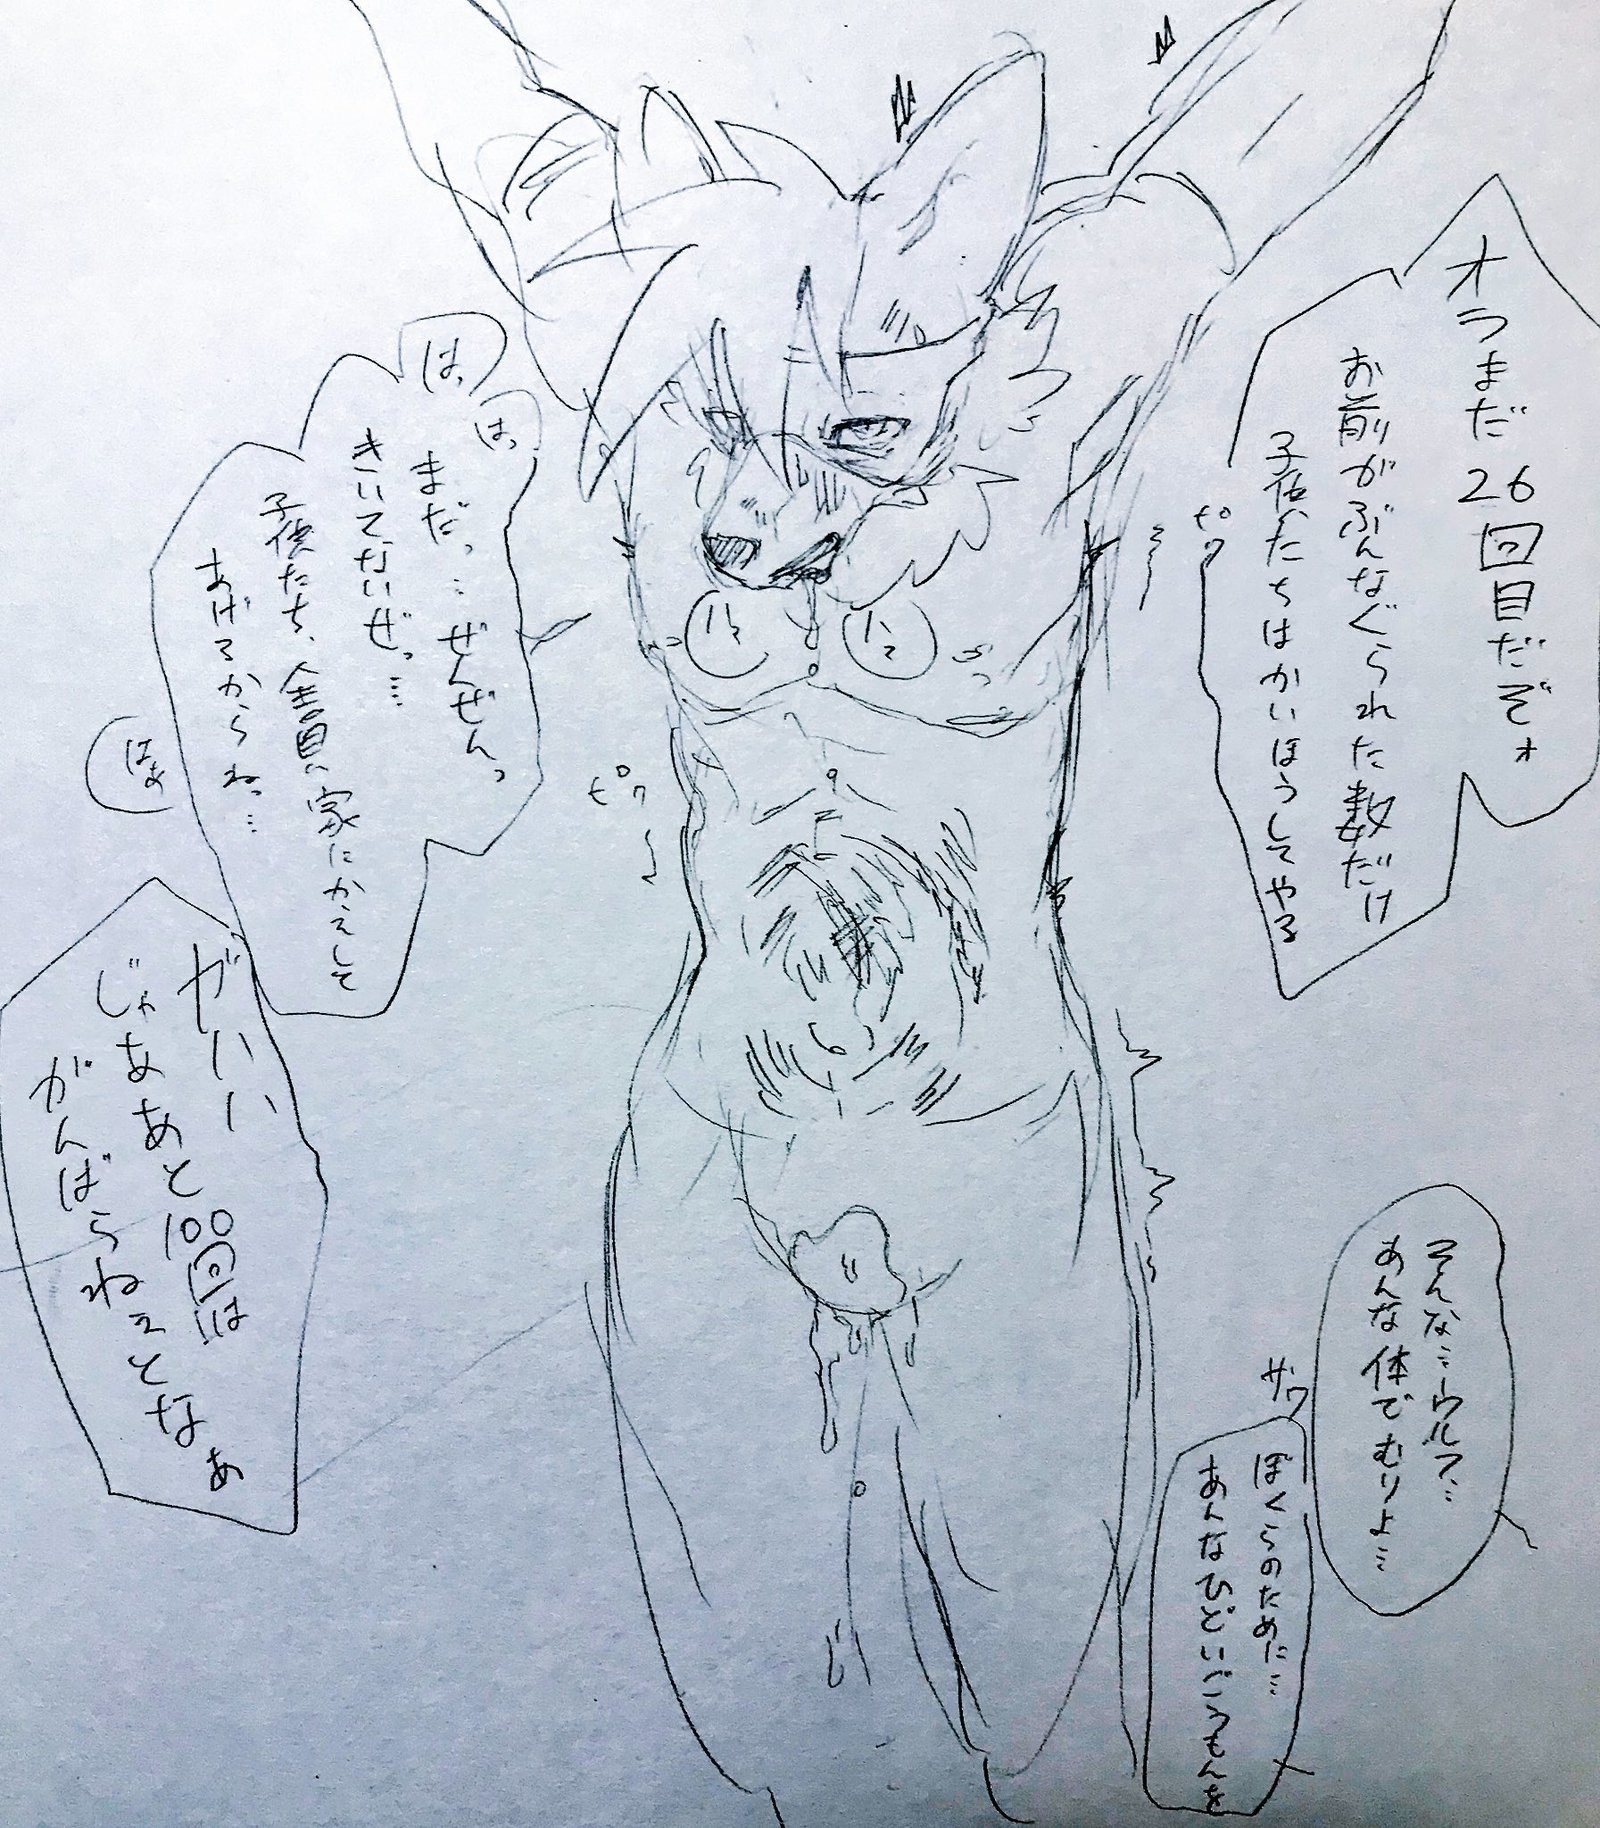 オラまだ26回目だぞォ
お前がぶんなぐられた数だけ
子供たちはかいほうしてやる
ピク
は、
はっ
まだっ…ぜんぜんっ
きいてないぜっ…
子供たち、全員家にかえして
あげるからねっ…
はぁ
ピク
ガハハ
じゃああと100回は
がんばらねぇとなぁ
そんな…ウルフ…
あんな体でむりよ…
ザワ
ぼくらのために…
あんなひどいごうもんを